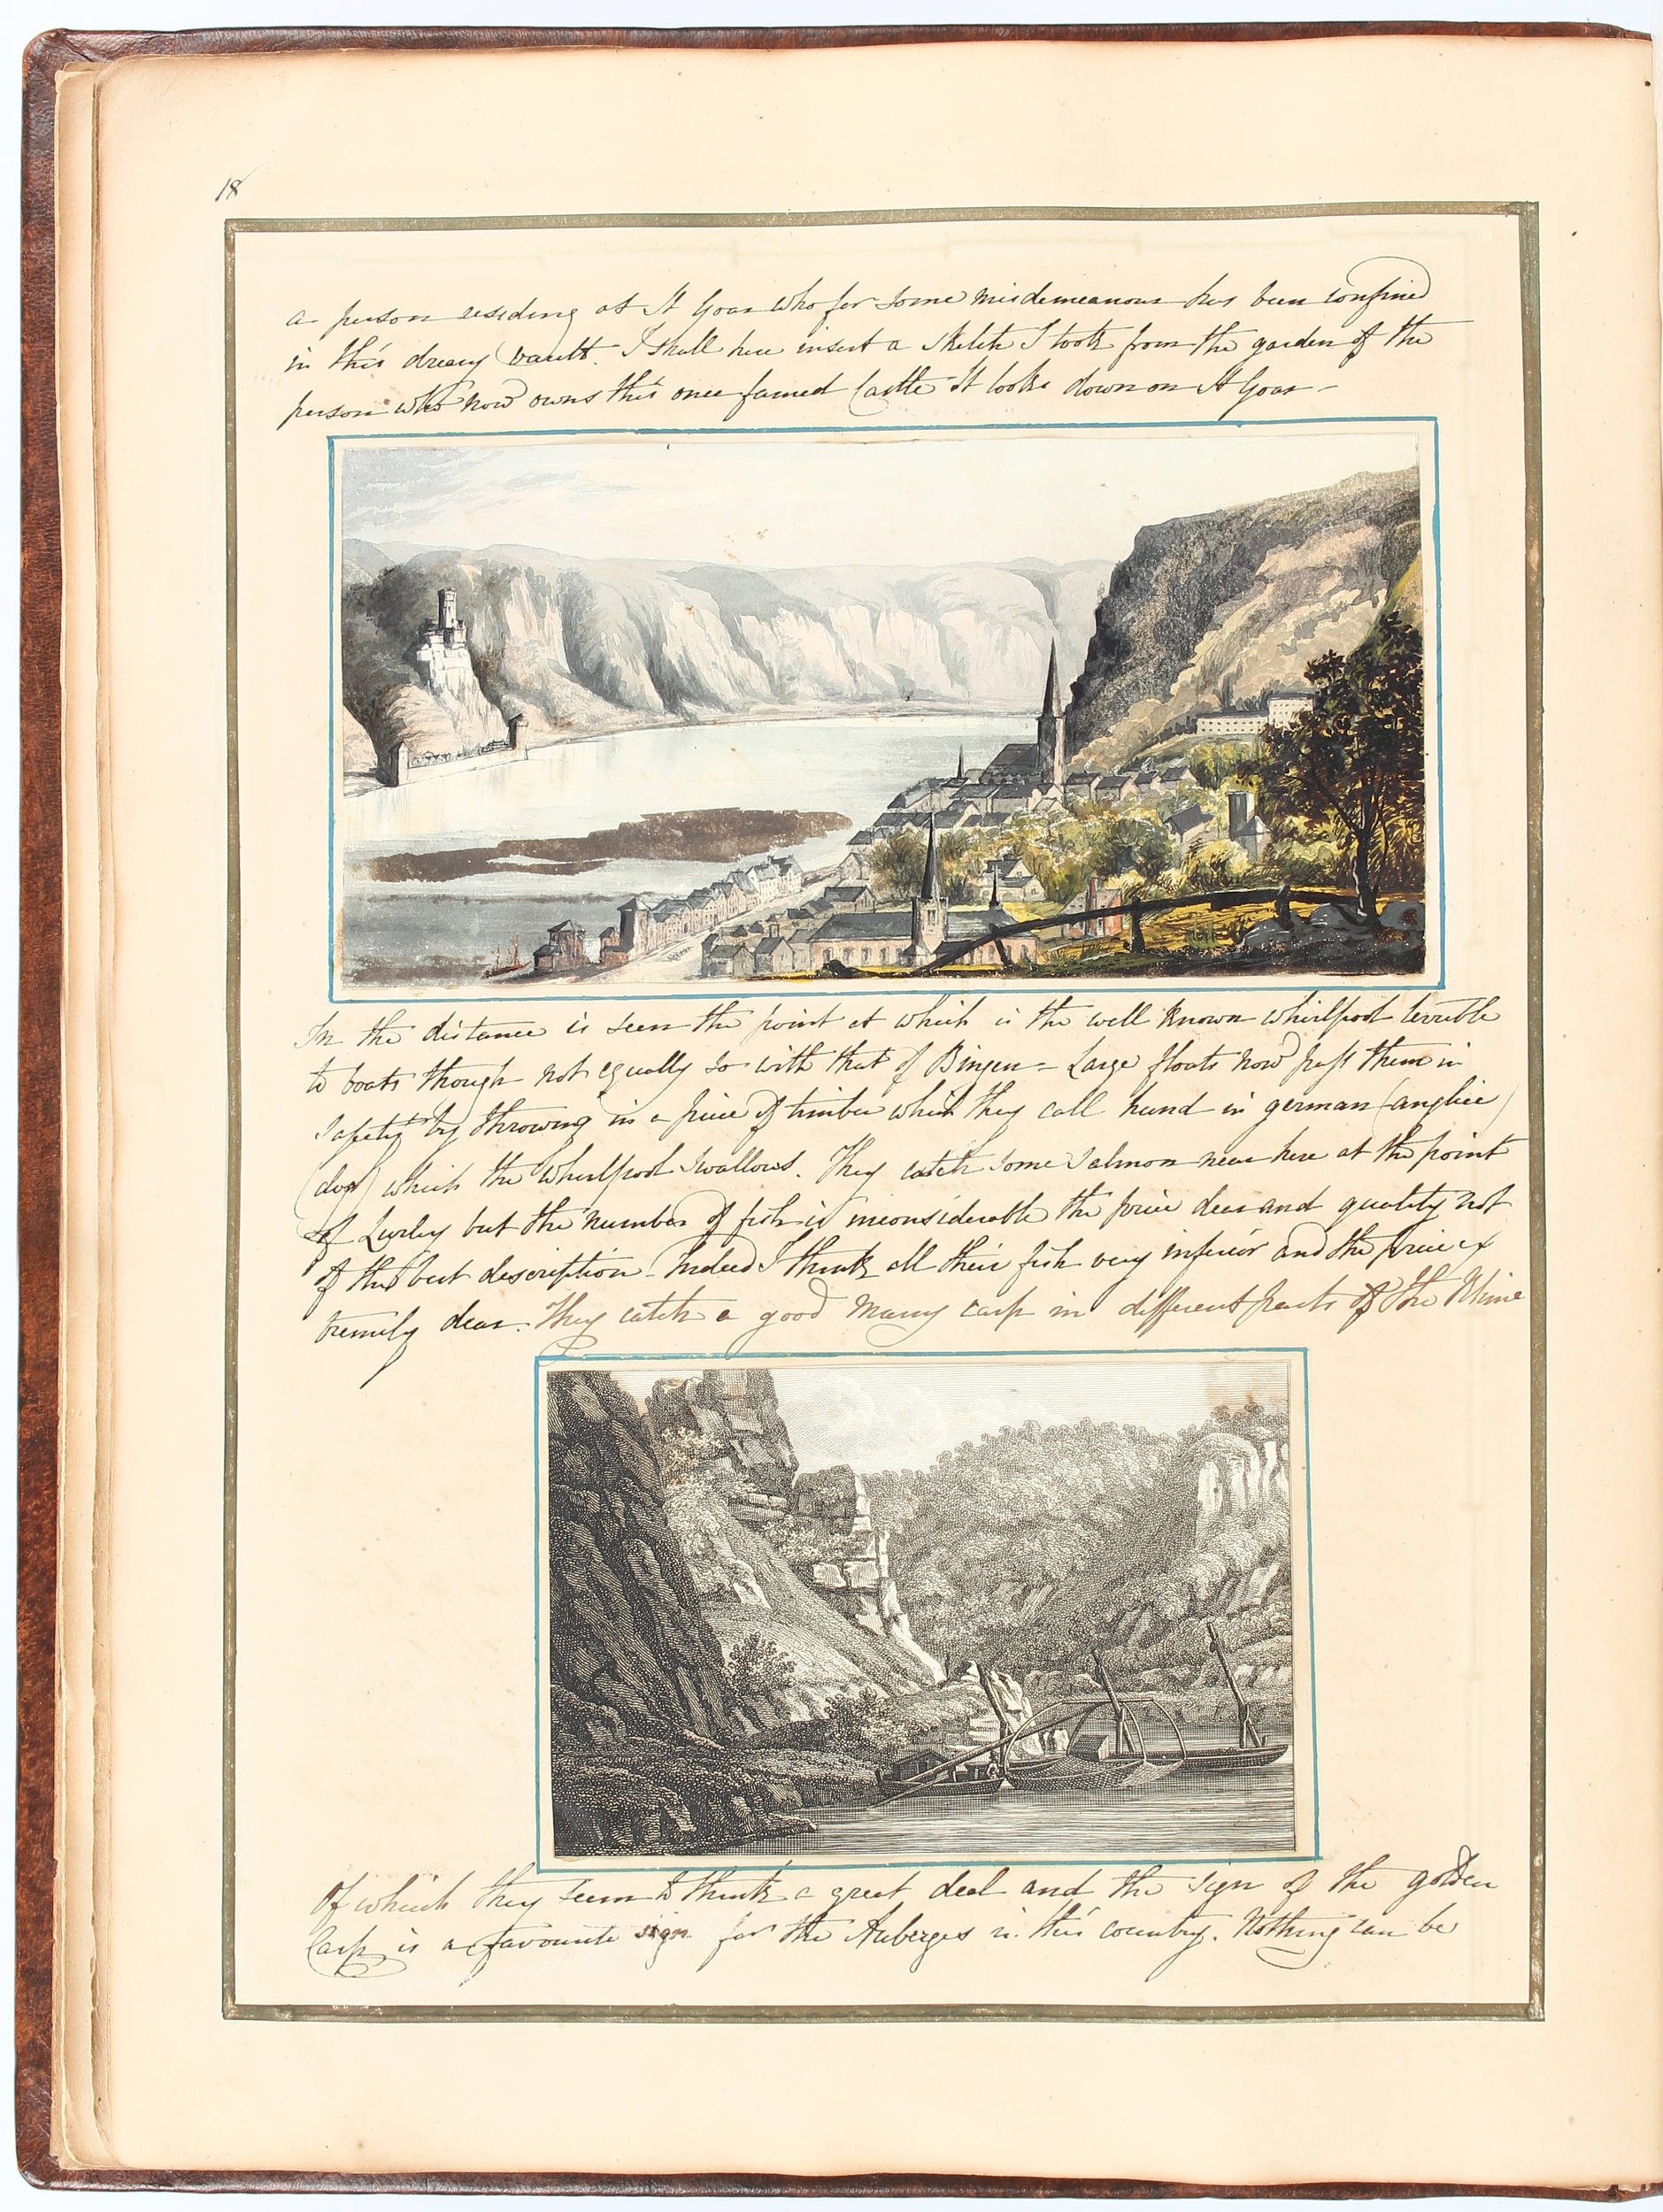 18
a person residing at St Goar who for some misdemeanour has been confined
in this dreary vault. I shall here insert a sketch I took from the garden of the
person who now owns this once famed Castle It looks down on St Goar -
In the distance is seen the point at which is the well known whirlpool terrible
to boats though not equally so with that of Bingen = Large floats now pass them in
safety by throwing in a piece of timber which they call hund in german (anglice)
(dog) which the whirlpool swallows. They catch some salmon near here at the point
of Lurley but the number of fish is inconsiderable the price dear and quality not
of the best description - Indeed I think all their fish very inferior and the price ex
tremely dear. They catch a good many carp in different parts of the Rhine
Of which they seem to think a great deal and the sign of the golden
Carp is a favourite sign for the Auberges in this country. Nothing can be